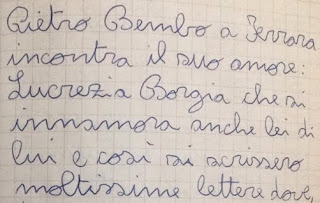 Pietro Bembo a Ferrara
incontra il suo amore:
Lucrezia Borgia che si
innamora anche lei di
lui e così si scrissero
moltissime lettere dove,